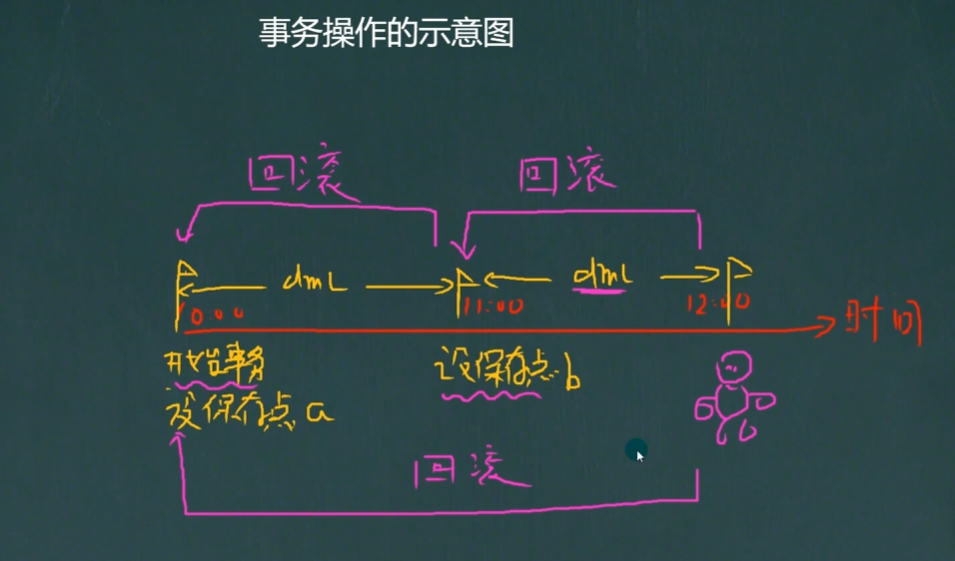 事务操作的示意图
回滚 回滚
dml dml
10:00 11:00 12:00 时间
开始事务 设保存点 b
设保存点 a
回滚